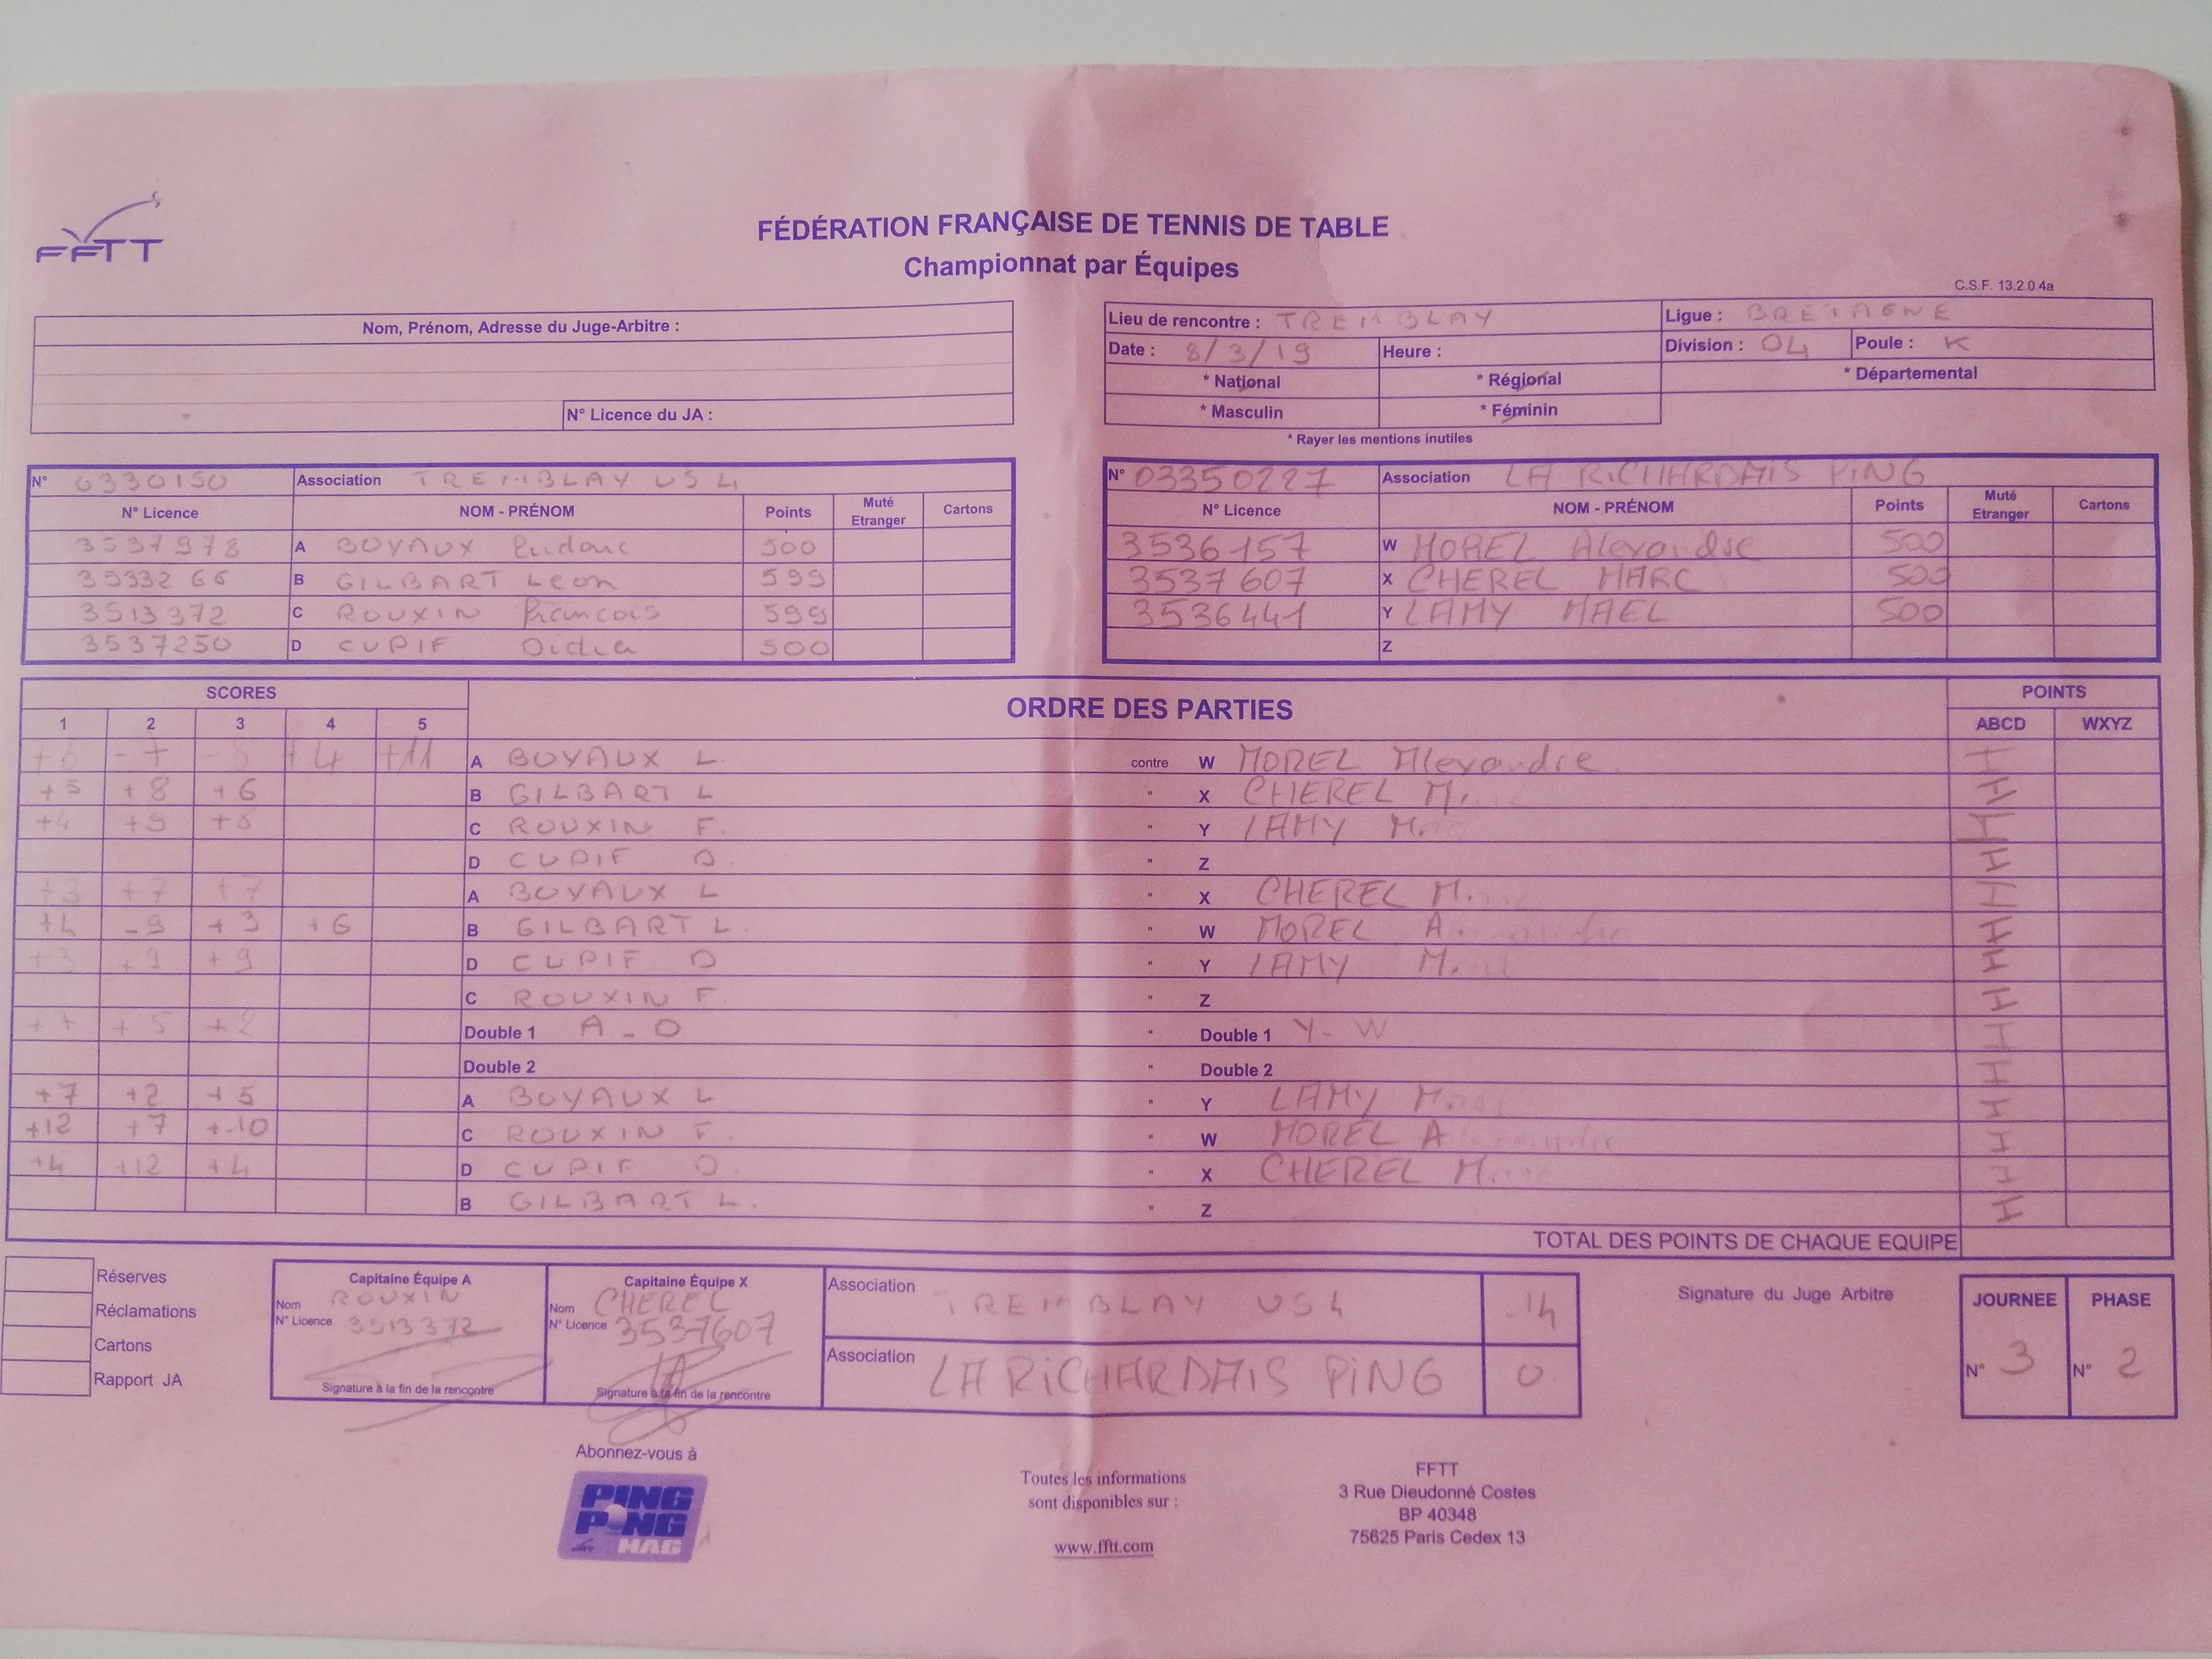 FFTT
FÉDÉRATION FRANÇAISE DE TENNIS DE TABLE
Championnat par Équipes
C.S.F. 13.2.0.4a
Nom, Prénom, Adresse du Juge-Arbitre :
N° Licence du JA :
Lieu de rencontre : TREMBLAY Ligue : BRETAGNE
Date : 8/3/19 Heure : Division : D4 Poule : K
* National * Régional * Départemental
* Masculin * Féminin
* Rayer les mentions inutiles
N° 0330150 Association TREMBLAY US 4
N° Licence NOM - PRÉNOM Points Muté Etranger Cartons
3537978 A BOYAUX Ludovic 500
3533266 B GILBART Leon 599
3513372 C ROUXIN Francois 599
3537250 D CUPIF Didier 500
N° 03350227 Association LA RICHARDAIS PING
N° Licence NOM - PRÉNOM Points Muté Etranger Cartons
3536157 W MOREL Alexandre 500
3537607 X CHEREL MARC 500
3536441 Y LAMY MAEL 500
Z
SCORES ORDRE DES PARTIES POINTS
1 2 3 4 5 ABCD WXYZ
+6 -7 -8 +4 +11 A BOYAUX L. contre W MOREL Alexandre
+5 +8 +6 B GILBART L " X CHEREL M.
+4 +9 +8 C ROUXIN F. " Y LAMY M.
D CUPIF D. " Z
+3 +7 +7 A BOYAUX L " X CHEREL M.
+4 -9 +3 +6 B GILBART L. " W MOREL A.
+3 +9 +9 D CUPIF D " Y LAMY M.
C ROUXIN F. " Z
+7 +5 +2 Double 1 A - D " Double 1 Y - W
Double 2 " Double 2
+7 +2 +5 A BOYAUX L " Y LAMY M
+12 +7 +10 C ROUXIN F. " W MOREL A
+4 +12 +4 D CUPIF D. " X CHEREL M.
B GILBART L. " Z
TOTAL DES POINTS DE CHAQUE EQUIPE
Réserves
Réclamations
Cartons
Rapport JA
Capitaine Équipe A
Nom ROUXIN
N° Licence 3513372
Signature à la fin de la rencontre
Capitaine Équipe X
Nom CHEREL
N° Licence 3537607
Signature à la fin de la rencontre
Association TREMBLAY US 4 14
Association LA RICHARDAIS PING 0
Signature du Juge Arbitre
JOURNEE PHASE
N° 3 N° 2
Abonnez-vous à
PING
PONG
MAG
Toutes les informations
sont disponibles sur :
www.fftt.com
FFTT
3 Rue Dieudonné Costes
BP 40348
75625 Paris Cedex 13